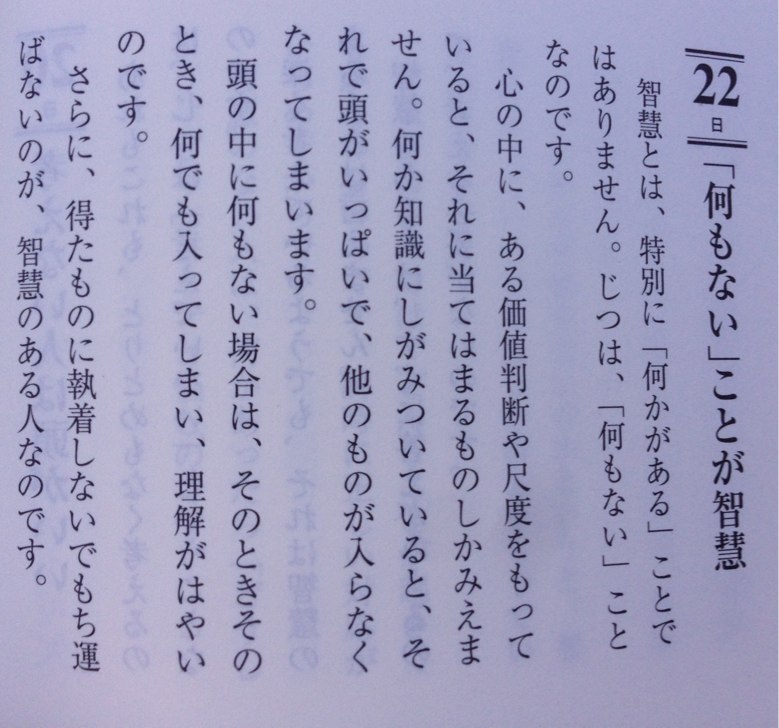 22日
「何もない」ことが智慧
智慧とは、特別に「何かがある」ことで
はありません。じつは、「何もない」こと
なのです。
心の中に、ある価値判断や尺度をもって
いると、それに当てはまるものしかみえま
せん。何か知識にしがみついていると、そ
れで頭がいっぱいで、他のものが入らなく
なってしまいます。
頭の中に何もない場合は、そのときその
とき、何でも入ってしまい、理解がはやい
のです。
さらに、得たものに執着しないでもち運
ばないのが、智慧のある人なのです。